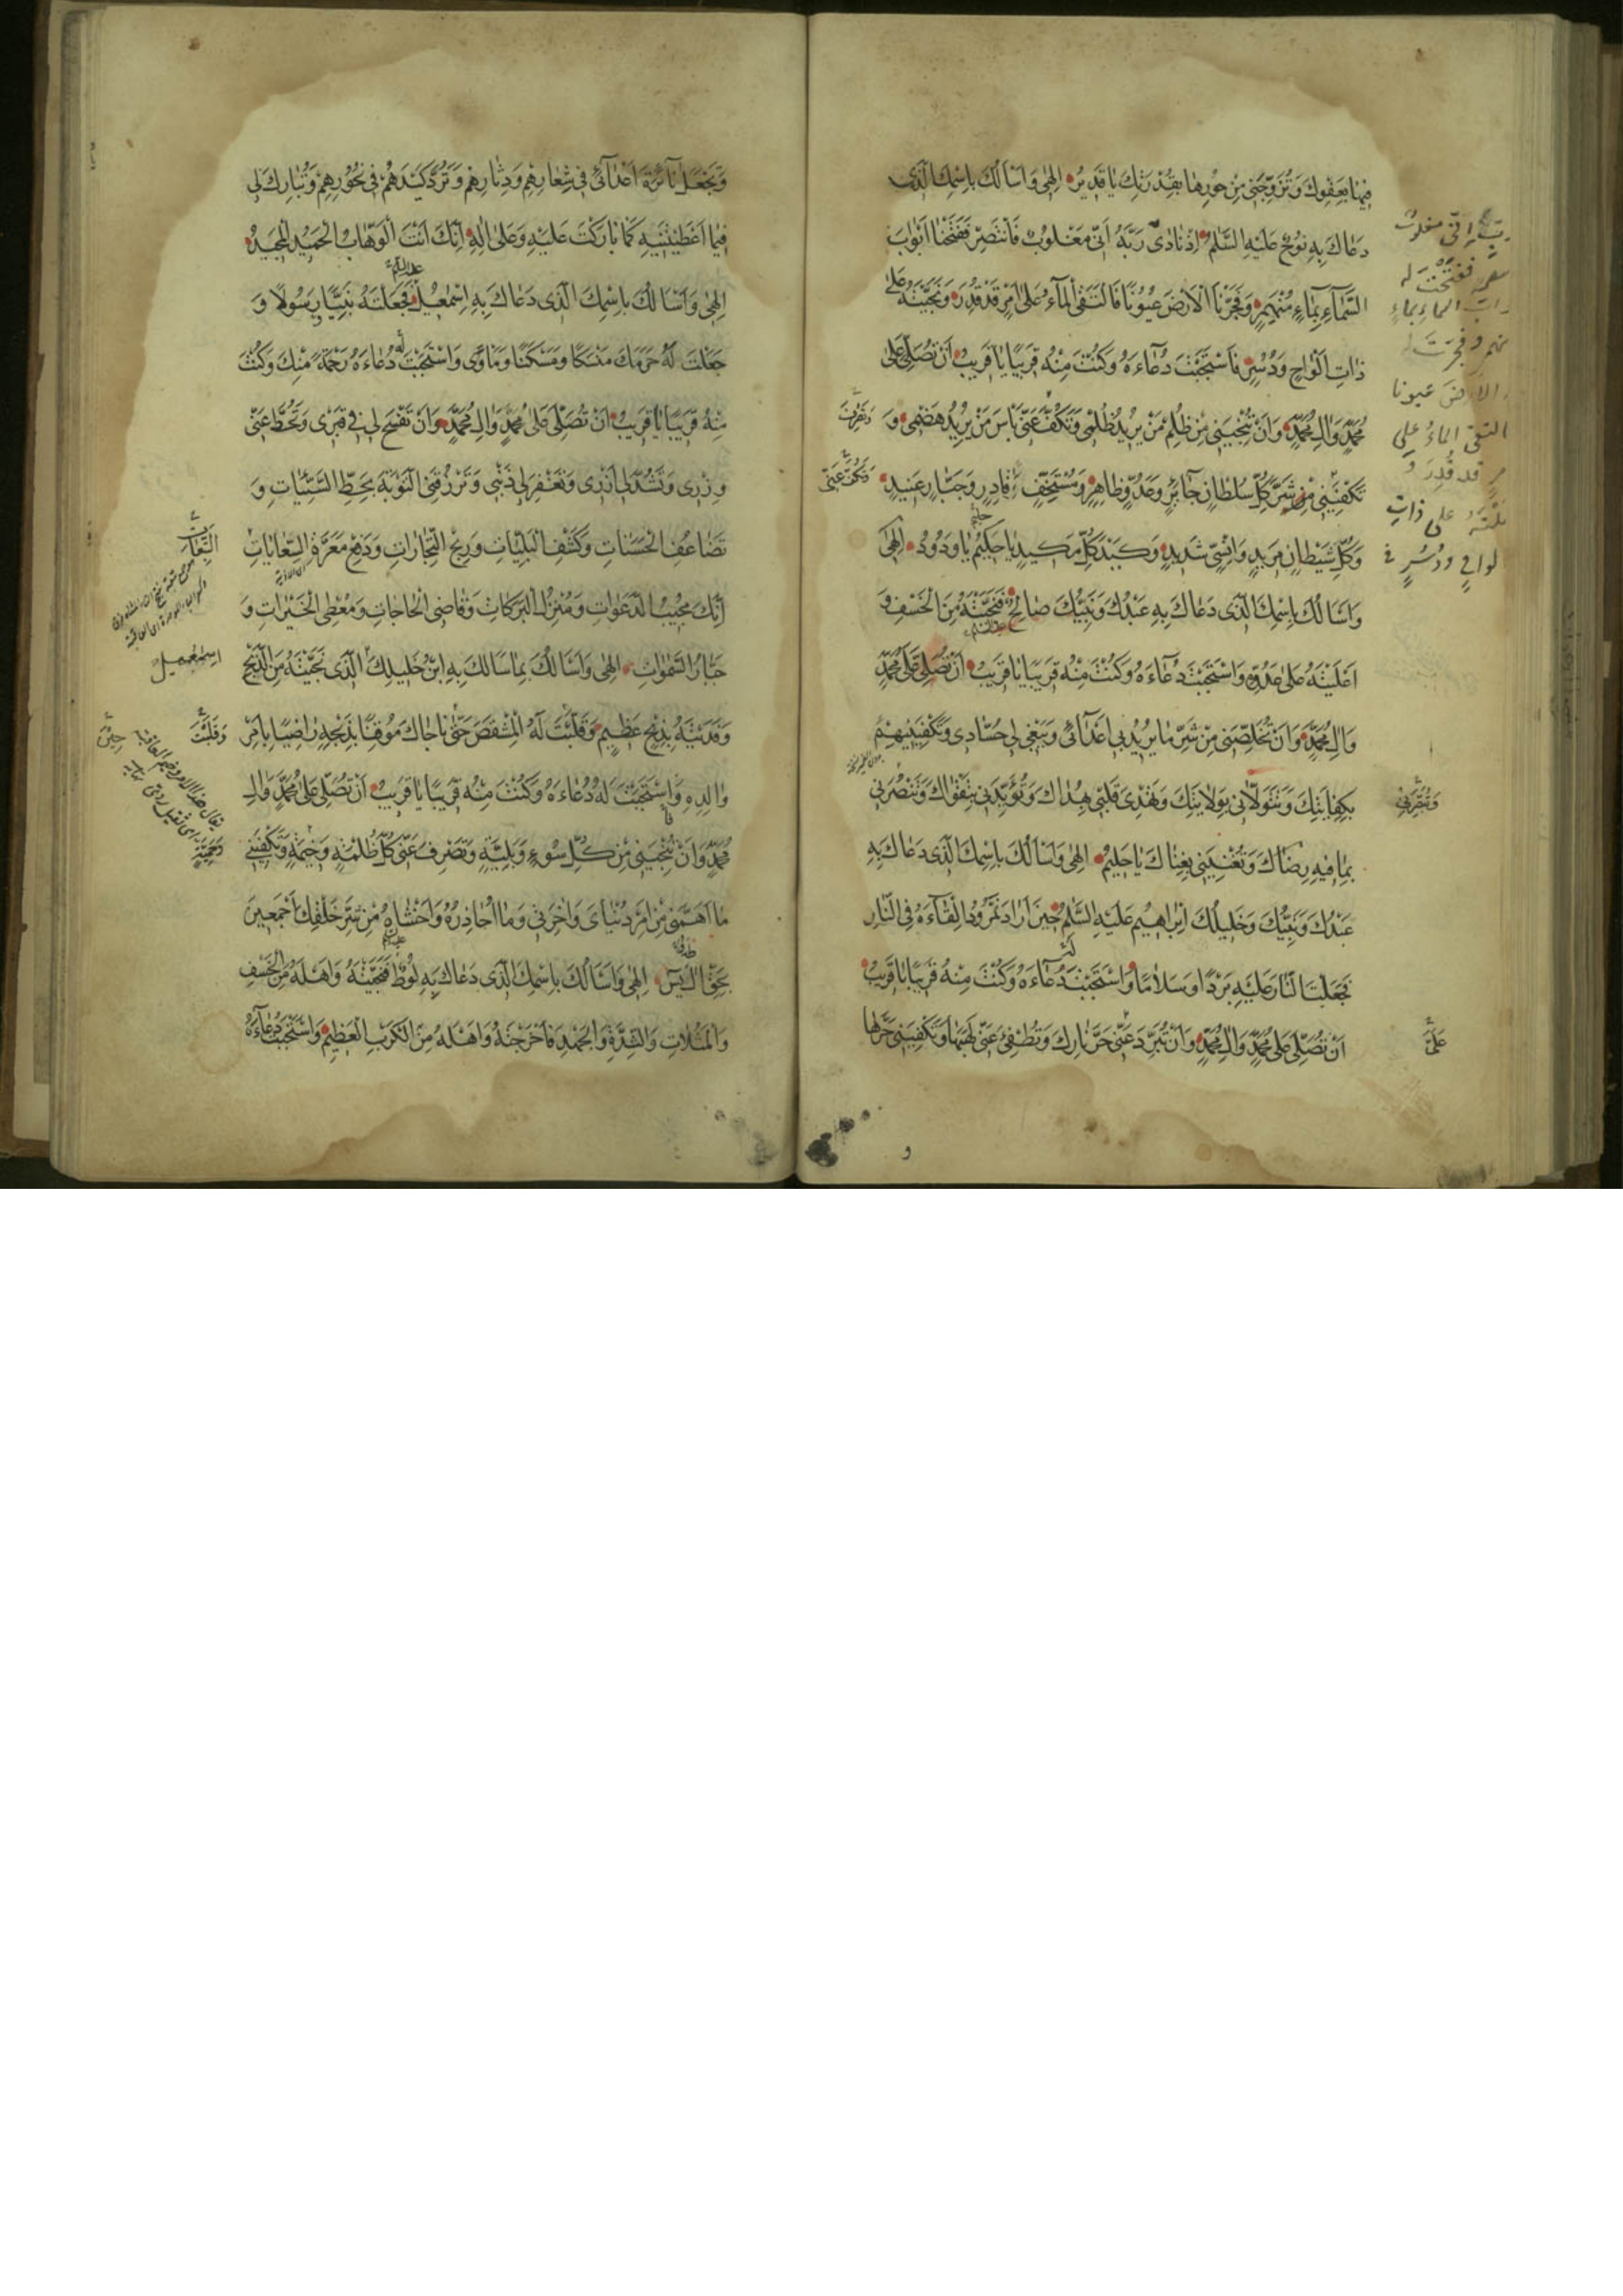 فِيهَا بِعَفْوِكَ وَتُزَوِّجَنِي مِنْ حُورِهَا بِقُدْرَتِكَ يَا قَدِيرُ اِلٰهِي وَاَسْاَلُكَ بِاسْمِكَ الَّذِي
دَعَاكَ بِهِ نُوحٌ عَلَيْهِ السَّلَمُ اِذْ نَادَى رَبَّهُ اَنِّي مَغْلُوبٌ فَانْتَصِرْ فَفَتَحْنَا اَبْوَابَ
السَّمَآءِ بِمَآءٍ مُنْهَمِرٍ وَفَجَّرْنَا الْاَرْضَ عُيُونًا فَالْتَقَى الْمَآءُ عَلَى اَمْرٍ قَدْ قُدِرَ وَنَجَّيْتَهُ عَلَى
ذَاتِ اَلْوَاحٍ وَدُسُرٍ فَاسْتَجَبْتَ دُعَآءَهُ وَكُنْتَ مِنْهُ قَرِيبًا يَا قَرِيبُ اَنْ تُصَلِّيَ عَلَى
مُحَمَّدٍ وَاٰلِ مُحَمَّدٍ وَاَنْ تُنْجِيَنِي مِنْ ظُلْمِ مَنْ يُرِيدُ ظُلْمِي وَتَكُفَّ عَنِّي بَاْسَ مَنْ يُرِيدُ هَضْمِي وَ
تَكْفِيَنِي مِنْ شَرِّ كُلِّ سُلْطَانٍ جَآئِرٍ وَعَدُوٍّ ظَاهِرٍ وَمُسْتَخِفٍّ قَادِرٍ وَجَبَّارٍ عَنِيدٍ
وَكُلِّ شَيْطَانٍ مَرِيدٍ وَاِنْسِيٍّ شَدِيدٍ وَكَيْدِ كُلِّ مَكِيدٍ يَا حَكِيمُ يَا وَدُودُ اِلٰهِي
وَاَسْاَلُكَ بِاسْمِكَ الَّذِي دَعَاكَ بِهِ عَبْدُكَ وَنَبِيُّكَ صَالِحٌ فَنَجَّيْتَهُ مِنَ الْخَسْفِ وَ
اَعْلَيْتَهُ عَلَى عَدُوِّهِ وَاسْتَجَبْتَ دُعَآءَهُ وَكُنْتَ مِنْهُ قَرِيبًا يَا قَرِيبُ اَنْ تُصَلِّيَ عَلَى مُحَمَّدٍ
وَاٰلِ مُحَمَّدٍ وَاَنْ تُخَلِّصَنِي مِنْ شَرِّ مَا يُرِيدُ بِي اَعْدَآئِي وَيَبْغِي لِي حُسَّادِي وَتَكْفِيَنِيهِمْ
بِكِفَايَتِكَ وَتَتَوَلَّانِي بِوَلَايَتِكَ وَتَهْدِيَ قَلْبِي بِهُدَاكَ وَتُؤَيِّدَنِي بِتَقْوَاكَ وَتَنْصُرَنِي
بِمَا فِيهِ رِضَاكَ وَتُغْنِيَنِي بِغِنَاكَ يَا حَلِيمُ اِلٰهِي وَاَسْاَلُكَ بِاسْمِكَ الَّذِي دَعَاكَ بِهِ
عَبْدُكَ وَنَبِيُّكَ وَخَلِيلُكَ اِبْرَاهِيمُ عَلَيْهِ السَّلَمُ حِينَ اَرَادَ نَمْرُودُ اِلْقَآءَهُ فِي النَّارِ
فَجَعَلْتَ النَّارَ عَلَيْهِ بَرْدًا وَسَلَامًا وَاسْتَجَبْتَ دُعَآءَهُ وَكُنْتَ مِنْهُ قَرِيبًا يَا قَرِيبُ
اَنْ تُصَلِّيَ عَلَى مُحَمَّدٍ وَاٰلِ مُحَمَّدٍ وَاَنْ تُبَرِّدَ عَنِّي حَرَّ نَارِكَ وَتُطْفِئَ عَنِّي لَهِيبَهَا وَتَكْفِيَنِي حَرَّهَا
اِنِّي مغلوبٌ
فَفَتَحْتَ له
السماءِ بماءٍ
وفجرتَ له
الارضَ عيونا
التقى الماءُ على
قد قُدِرَ و
على ذاتِ
الواحٍ ودُسُرٍ
وَتَكُفَّ عَنِّي
وَ
وَتَجْعَلَ نَآئِرَةَ اَعْدَآئِي فِي شِعَارِهِمْ وَدِثَارِهِمْ وَتَرُدَّ كَيْدَهُمْ فِي نُحُورِهِمْ وَتُبَارِكَ لِي
فِيمَا اَعْطَيْتَنِيهِ كَمَا بَارَكْتَ عَلَيْهِ وَعَلَى اٰلِهِ اِنَّكَ اَنْتَ الْوَهَّابُ الْحَمِيدُ الْمَجِيدُ
اِلٰهِي وَاَسْاَلُكَ بِاسْمِكَ الَّذِي دَعَاكَ بِهِ اِسْمٰعِيلُ فَجَعَلْتَهُ نَبِيًّا رَسُولًا وَ
جَعَلْتَ لَهُ حَرَمَكَ مَنْسَكًا وَمَسْكَنًا وَمَاْوًى وَاسْتَجَبْتَ دُعَاءَهُ رَحْمَةً مِنْكَ وَكُنْتَ
مِنْهُ قَرِيبًا يَا قَرِيبُ اَنْ تُصَلِّيَ عَلَى مُحَمَّدٍ وَاٰلِ مُحَمَّدٍ وَاَنْ تَفْسَحَ لِي فِي قَبْرِي وَتَحُطَّ عَنِّي
وِزْرِي وَتَشُدَّ لِي اَزْرِي وَتَغْفِرَ لِي ذَنْبِي وَتَرْزُقَنِي التَّوْبَةَ بِحَطِّ السَّيِّئَاتِ وَ
تَضَاعُفِ الْحَسَنَاتِ وَكَشْفِ الْبَلِيَّاتِ وَرِبْحِ التِّجَارَاتِ وَدَفْعِ مَعَرَّةِ السِّعَايَاتِ
اِنَّكَ مُجِيبُ الدَّعَوَاتِ وَمُنْزِلُ الْبَرَكَاتِ وَقَاضِي الْحَاجَاتِ وَمُعْطِي الْخَيْرَاتِ وَ
جَبَّارُ السَّمٰوَاتِ اِلٰهِي وَاَسْاَلُكَ بِمَا سَاَلَكَ بِهِ ابْنُ خَلِيلِكَ الَّذِي نَجَّيْتَهُ مِنَ الذَّبْحِ
وَفَدَيْتَهُ بِذِبْحٍ عَظِيمٍ وَقَلَّبْتَ لَهُ الْمِشْقَصَ حَتَّى نَاجَاكَ مُوقِنًا بِذَبْحِهِ رَاضِيًا بِاَمْرِ
وَالِدِهِ وَاسْتَجَبْتَ لَهُ دُعَاءَهُ وَكُنْتَ مِنْهُ قَرِيبًا يَا قَرِيبُ اَنْ تُصَلِّيَ عَلَى مُحَمَّدٍ وَاٰلِ
مُحَمَّدٍ وَاَنْ تُنْجِيَنِي مِنْ كُلِّ سُوءٍ وَبَلِيَّةٍ وَتَصْرِفَ عَنِّي كُلَّ ظُلْمَةٍ وَخِيمَةٍ وَتَكْفِيَنِي
مَا اَهَمَّنِي مِنْ اَمْرِ دُنْيَايَ وَاٰخِرَتِي وَمَا اُحَاذِرُهُ وَاَخْشَاهُ مِنْ شَرِّ خَلْقِكَ اَجْمَعِينَ
بِحَقِّ اٰلِ يٰسٓ اِلٰهِي وَاَسْاَلُكَ بِاسْمِكَ الَّذِي دَعَاكَ بِهِ لُوطٌ فَنَجَّيْتَهُ وَاَهْلَهُ مِنَ الْخَسْفِ
وَالْمَثُلَاتِ وَالشِّدَّةِ وَالْجَهْدِ فَاَخْرَجْتَهُ وَاَهْلَهُ مِنَ الْكَرْبِ الْعَظِيمِ وَاسْتَجَبْتَ دُعَآءَهُ
اسمٰعيل
وَقَلَبْتَ
حِينَ